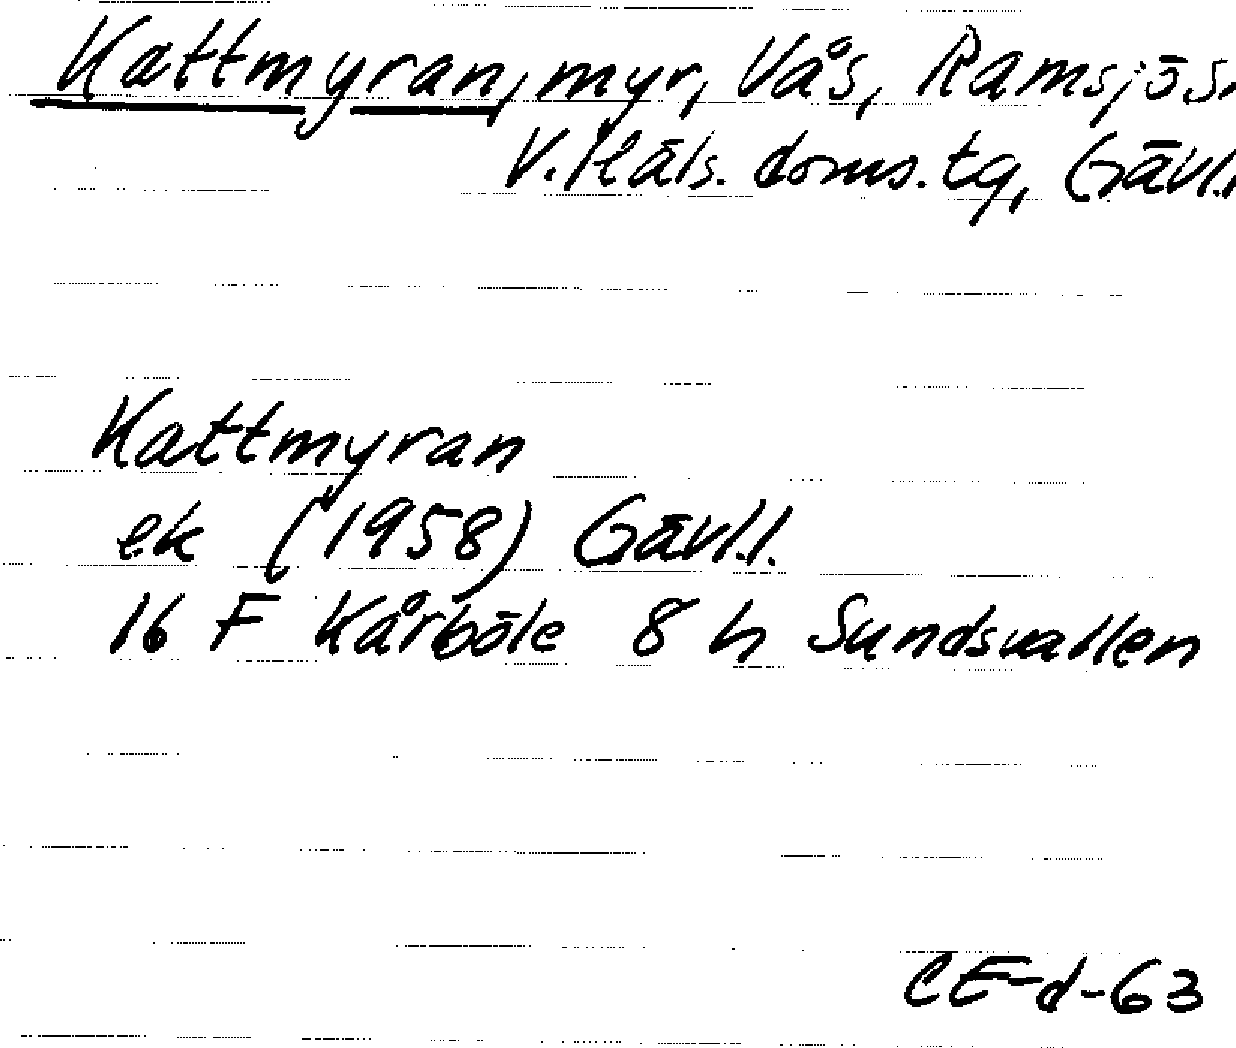 Kattmyran, myr, Vås, Ramsjö sn
V. Häls. doms. tg, Gävl.l
Kattmyran
ek (1958) Gävl.l.
16 F Kårböle 8 h Sundsvallen
CE-d-63